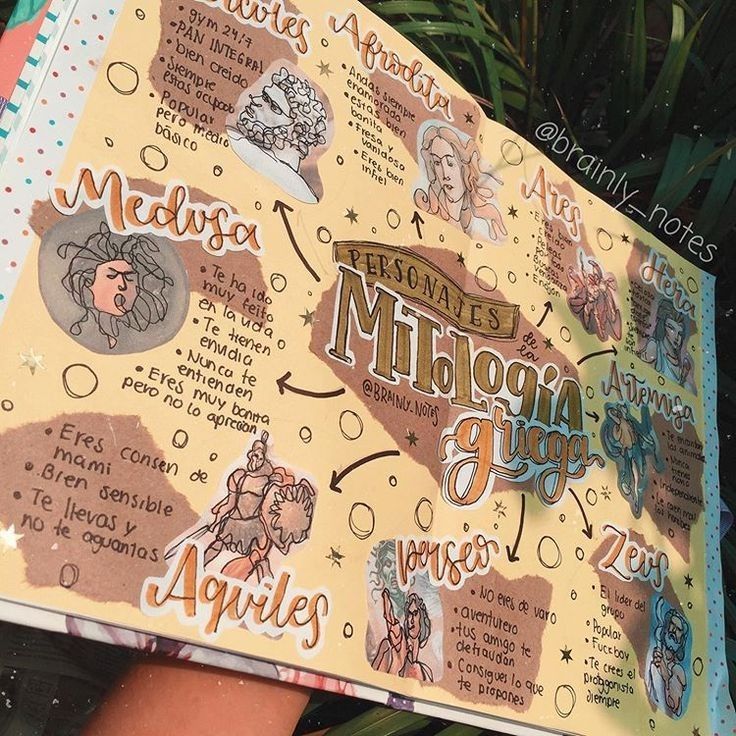 • gym 24/7
• PAN INTEGRAL
• bien creido
• Siempre
estas ocupado
• Popular
pero medio
básico
Afrodita
• Andas siempre
enamorada
• estas bien
bonita
• Fresa y
vanidosa
• Eres bien
infiel
@brainly_notes
Ares
• Eres bien
Hera
Medusa
• Te ha ido
muy feito
en la vida
• Te tienen
envidia
• Nunca te
entienden
• Eres muy bonita
pero no lo aprecian
PERSONAJES
de la
MITOLOGÍA
griega
@BRAINLY_NOTES
Artemisa
• Nunca
tienes
• Eres consen de
mami
• Bien sensible
• Te llevas y
no te aguantas
Aquiles
perseo
• No eres de varo
• aventurero
• tus amigo te
defraudan
• Consigues lo que
te propones
Zeus
• El lider del
grupo
• Popular
• Fuckboy
• Te crees el
protagonista
siempre